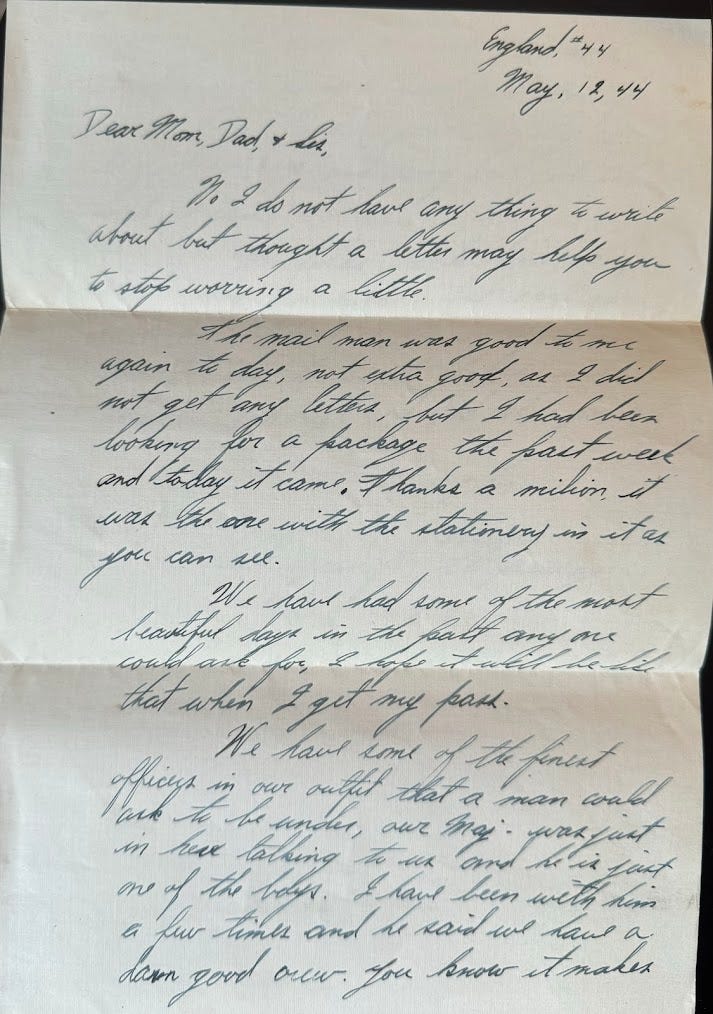 England, #44
May, 12, 44
Dear Mom, Dad, + Sis,
No I do not have any thing to write
about but thought a letter may help you
to stop worring a little.
The mail man was good to me
again to day, not extra good, as I did
not get any letters, but I had been
looking for a package the past week
and today it came. Thanks a milion, it
was the one with the stationery in it as
you can see.
We have had some of the most
beautiful days in the past any one
could ask for, I hope it will be like
that when I get my pass.
We have some of the finest
officers in our outfit that a man could
ask to be under, our Maj. was just
in here talking to us and he is just
one of the boys. I have been with him
a few times and he said we have a
damn good crew. You know it makes